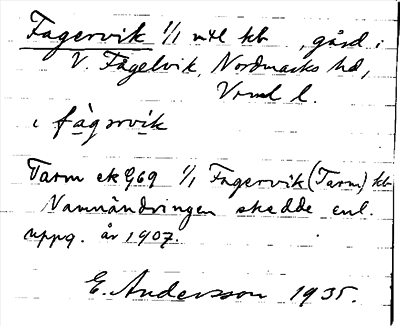 Fagervik 1/1 mtl kb , gård i
V. Fågelvik, Nordmarks hd,
Vrml l.
i fàgərvik
Tarm ek 969 1/1 Fagervik (Tarm) kb
Namnändringen skedde enl.
uppg. år 1907.
E. Andersson 1935.